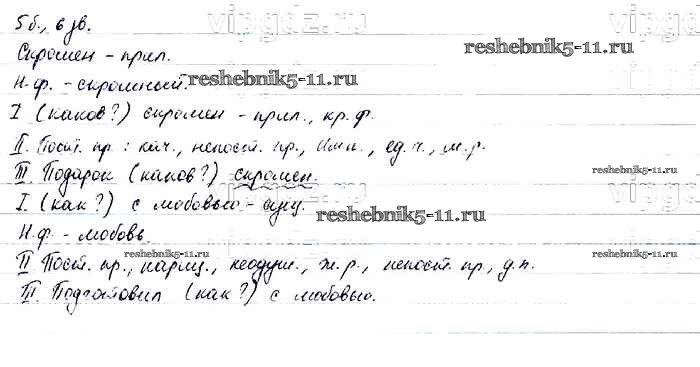 5б., 6 зв.
Скромен - прил.
Н.ф. - скромный.
I (каков?) скромен - прил., кр.ф.
II. Пост. пр.: кач., непост. пр., Им.п., ед.ч., м.р.
III. Подарок (каков?) скромен.
I. (как?) с любовью - сущ.
Н.ф. - любовь.
II Пост. пр., нариц., неодуш., ж.р., непост. пр., д.п.
III. Подготовил (как?) с любовью.
vipgdz.ru
reshebnik5-11.ru
reshebnik5-11.ru
vipgdz.ru
reshebnik5-11.ru
vipgdz.ru
reshebnik5-11.ru
reshebnik5-11.ru
reshebnik5-11.ru